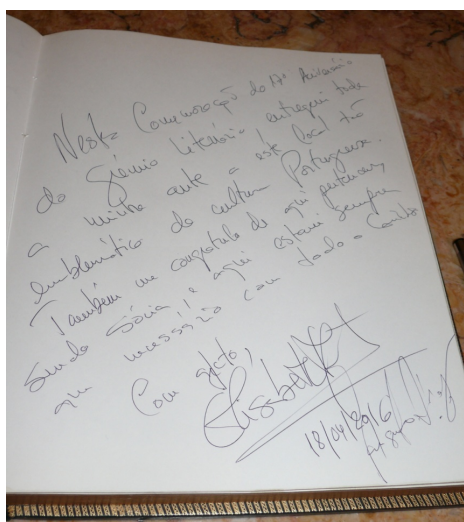 Nesta Comemoração do Aniversário
do Grémio Literário entreguei toda
a minha arte a este local tão
emblemático da cultura Portuguesa.
Também me congratulo de aqui pertencer,
sendo Sócia!! e aqui estarei sempre
que necessário com todo o Carinho
Com afecto,
Elisabete
18/04/2016